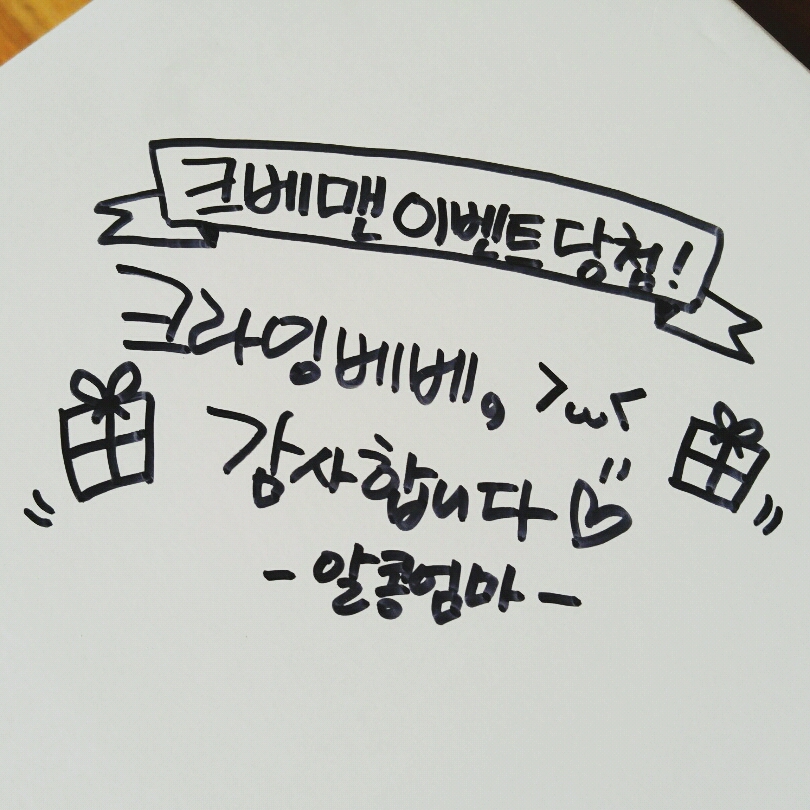 크베맨 이벤트 당첨!
크라잉베베, >ω<
감사합니다♡"
- 알콩엄마 -